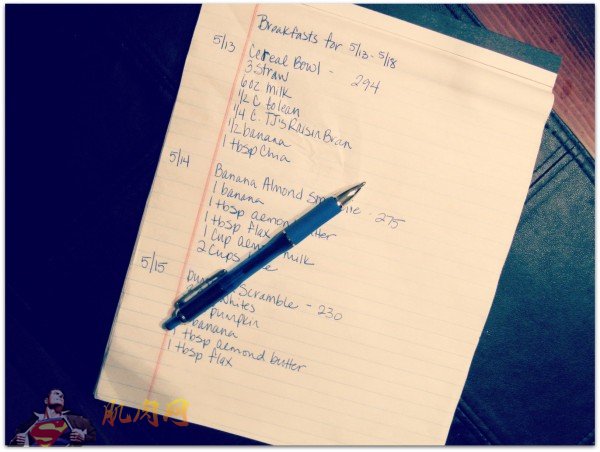 Breakfasts for 5/13 - 5/18
5/13 Cereal Bowl - 294
3 Straw
6 oz milk
1/2 C
1/4 C. TJ's Raisin Bran
1/2 banana
1 tbsp Chia
5/14 Banana Almond - 275
1 banana
1 tbsp almond
1 tbsp flax
1 Cup milk
2 Cups
5/15 Scramble - 230
whites
pumpkin
banana
1 tbsp almond butter
1 tbsp flax
肌肉网